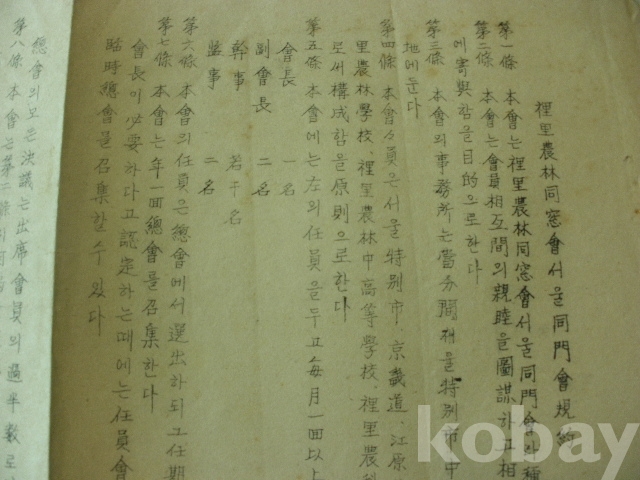 裡里農林同窓會서울同門會規約
第一條 本會는裡里農林同窓會서울同門會라種
第二條 本會는會員相互間의親睦을圖謀하고相
에寄與함을目的으로한다
第三條 本會의事務所는當分間서울特別市中
地에둔다
第四條 本會々員은서울特別市、京畿道、江原
里農林學校、裡里農林中高等學校、裡里農科
로써構成함을原則으로한다
第五條 本會에는左의任員을두고每月一回以上
會長 一名
副會長 二名
幹事 若干名
監事 二名
第六條 本會의任員은總會에서選出하되그任期
第七條 本會는年一回總會를召集한다
會長이必要하다고認定하는때에는任員會
臨時總會를召集할수있다
總會의모든決議는出席會員의過半數로
第八條 本會는第二條
kobay